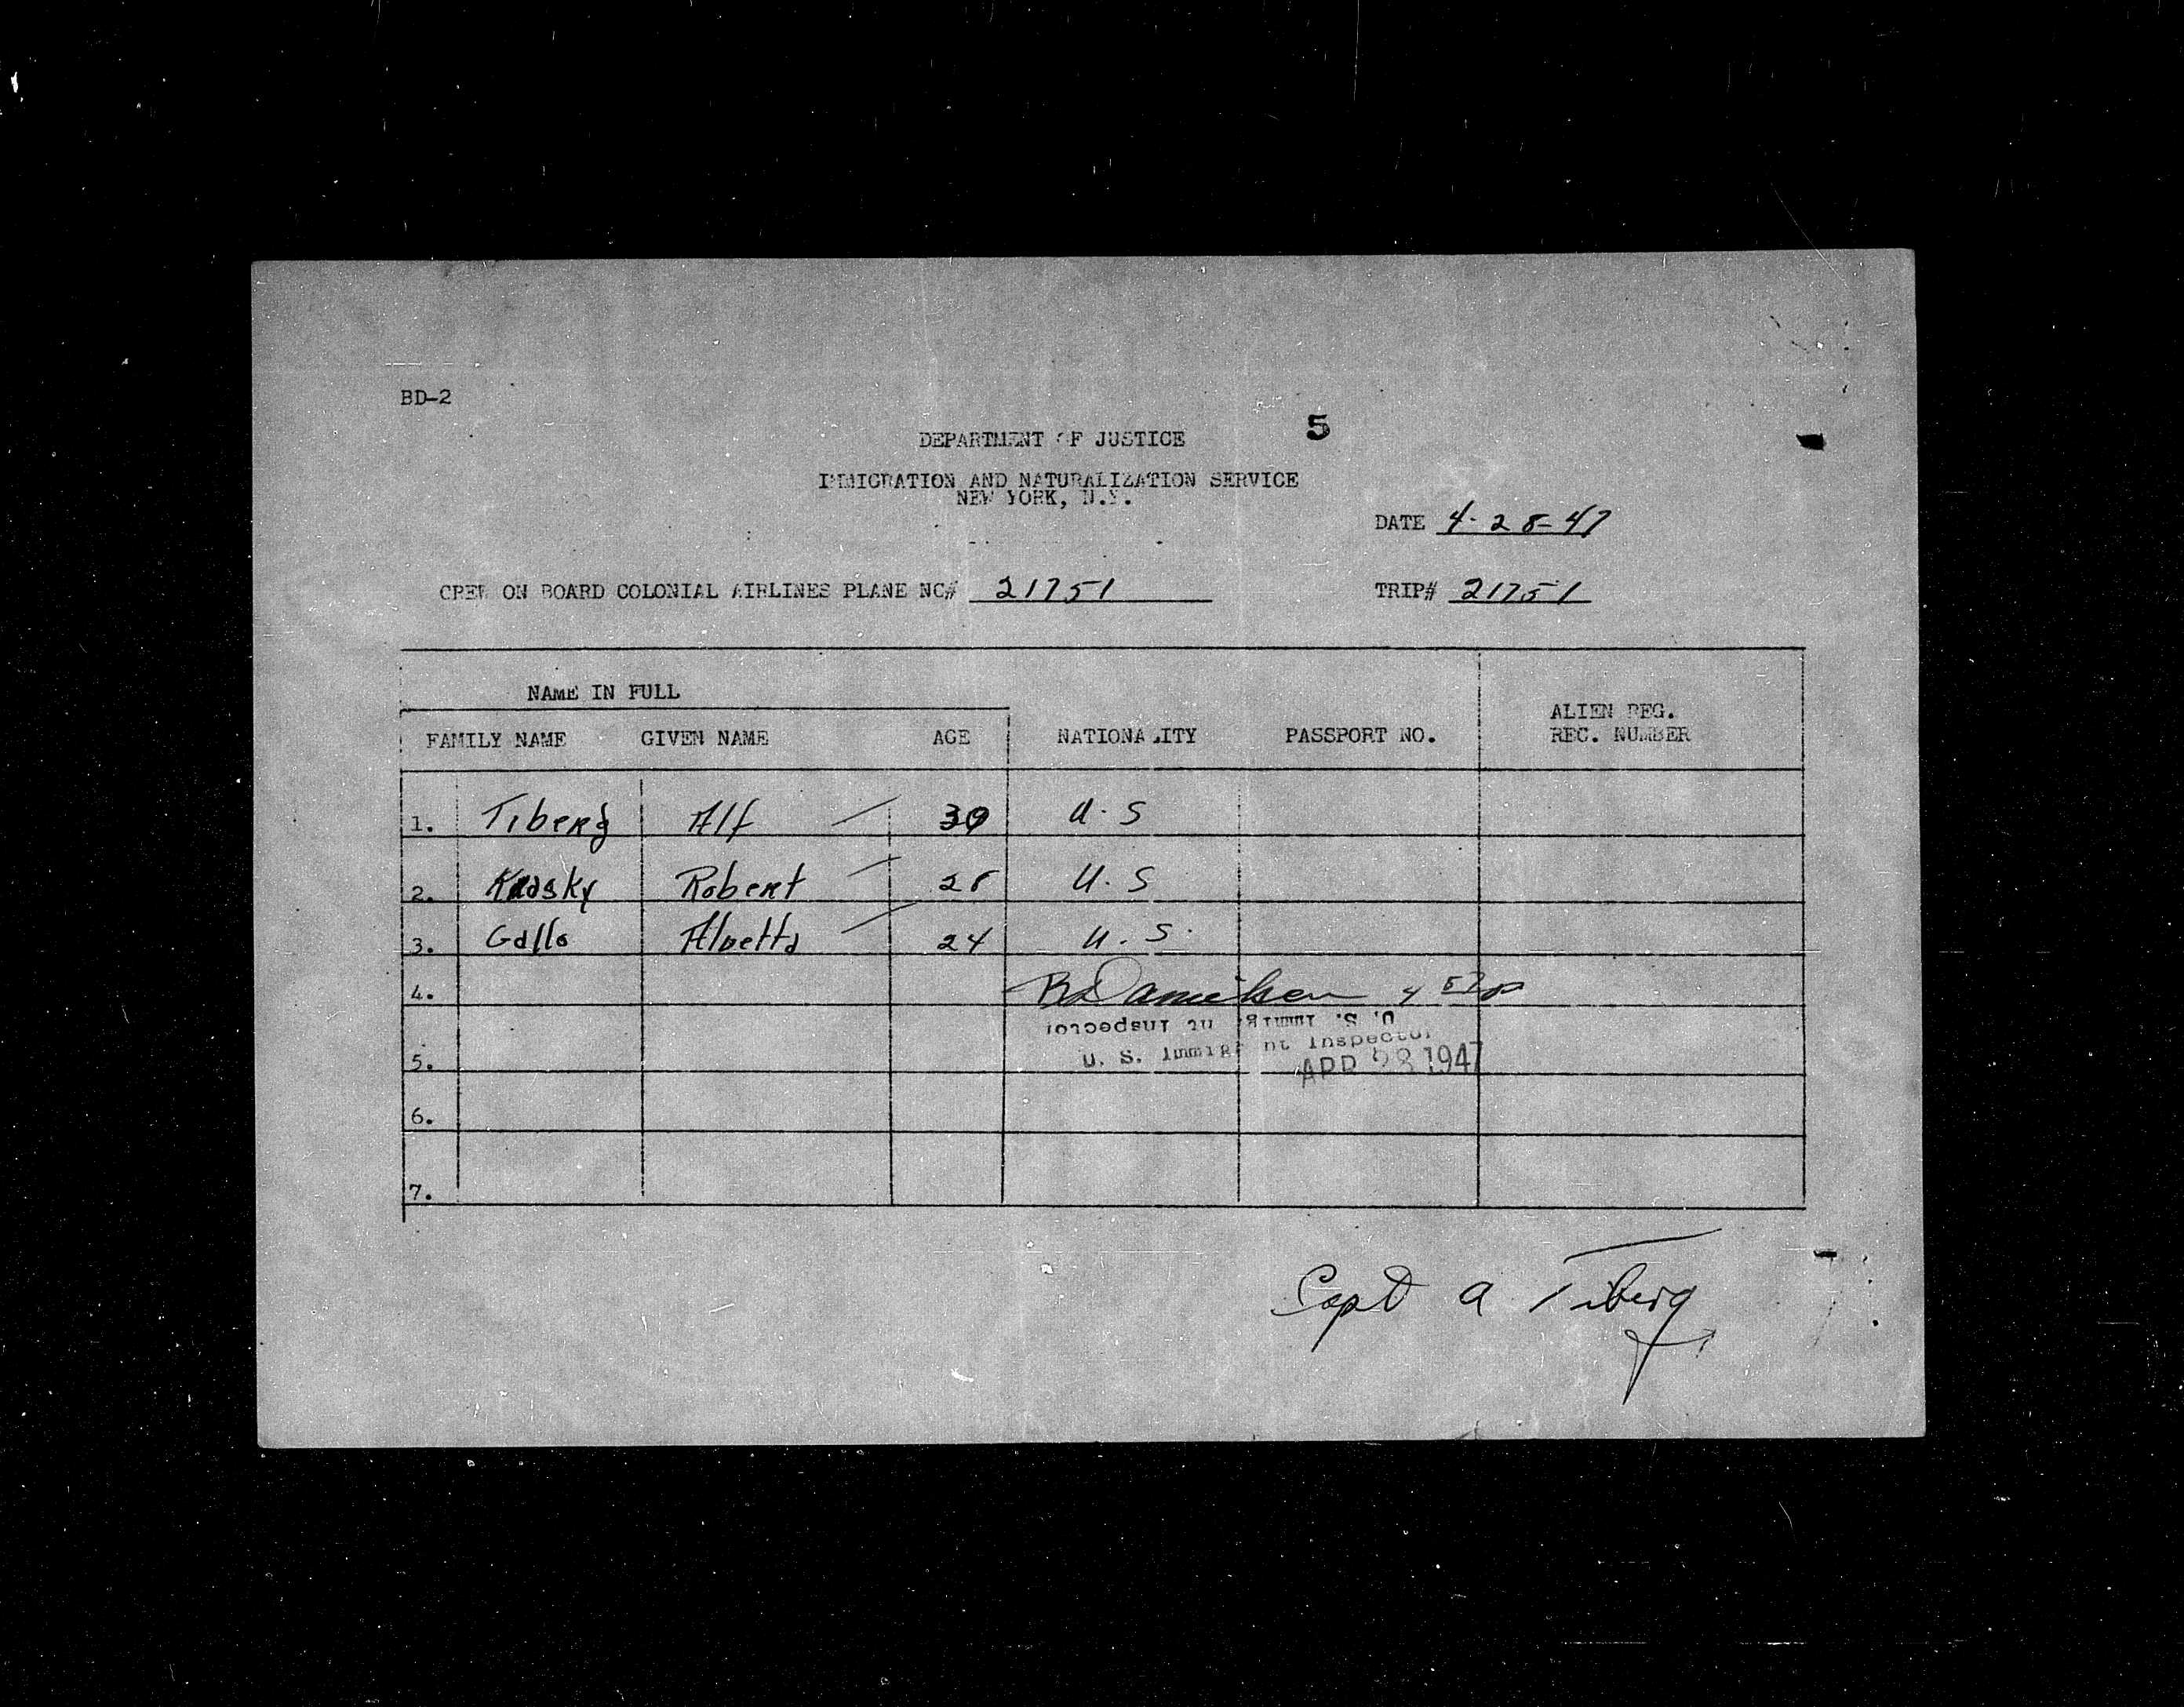 BD-2
5
DEPARTMENT OF JUSTICE
IMMIGRATION AND NATURALIZATION SERVICE
NEW YORK, N.Y.
DATE 4-28-47
CREW ON BOARD COLONIAL AIRLINES PLANE NC# 21751 TRIP# 21751
NAME IN FULL
FAMILY NAME GIVEN NAME AGE NATIONALITY PASSPORT NO. ALIEN REG. REC. NUMBER
1. Tiberg Alf 39 U.S
2. Robert 28 U.S
3. Gallo 24 U.S.
4. Danielsen
U. S. Immig nt Inspector
5. U. S. Immigr nt Inspector
APR 28 1947
6.
7.
Capt A Tiberg